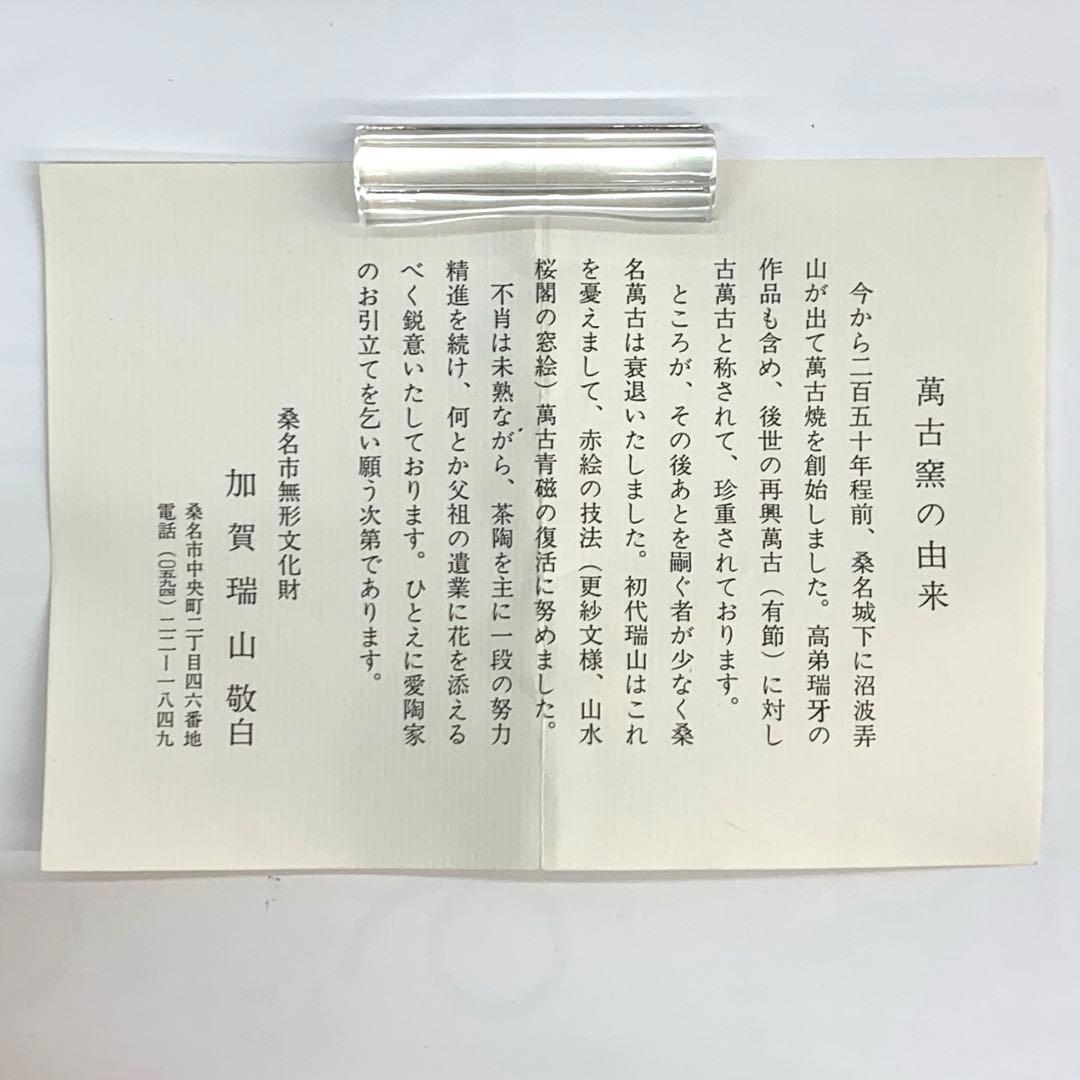 萬古窯の由来
今から二百五十年程前、桑名城下に沼波弄
山が出て萬古焼を創始しました。高弟瑞牙の
作品も含め、後世の再興萬古（有節）に対し
古萬古と称されて、珍重されております。
ところが、その後あとを嗣ぐ者が少なく桑
名萬古は衰退いたしました。初代瑞山はこれ
を憂えまして、赤絵の技法（更紗文様、山水
桜閣の窓絵）萬古青磁の復活に努めました。
不肖は未熟ながら、茶陶を主に一段の努力
精進を続け、何とか父祖の遺業に花を添える
べく鋭意いたしております。ひとえに愛陶家
のお引立てを乞い願う次第であります。
桑名市無形文化財
加賀瑞山敬白
桑名市中央町二丁目四六番地
電話（〇五九四）二二ー一八四九